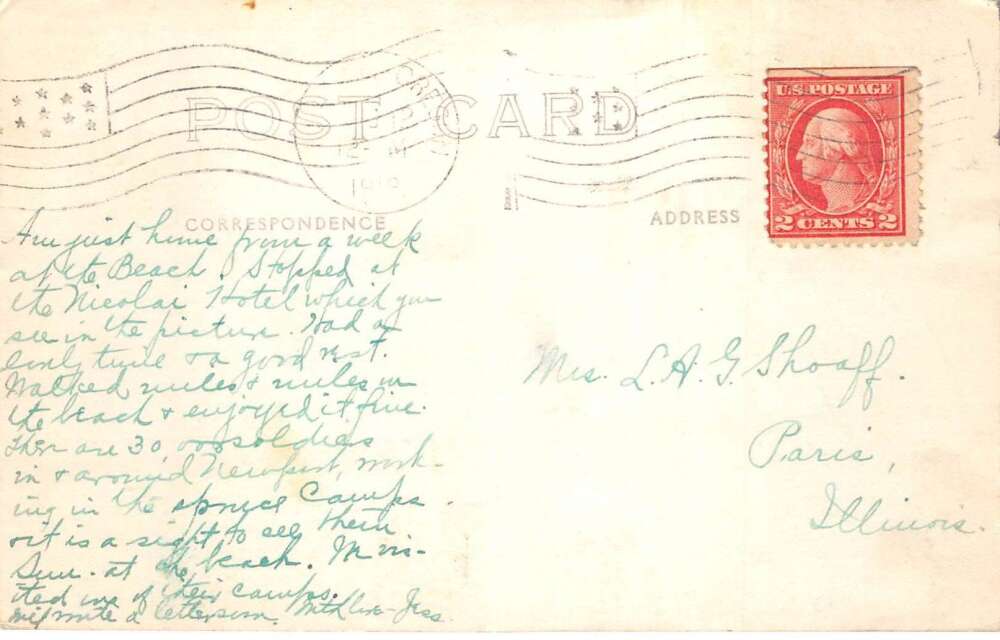 POST CARD
U.S. POSTAGE
2 CENTS 2
CORRESPONDENCE
ADDRESS
Am just home from a week
at the Beach. Stopped at
the Nicolai Hotel which you
see in the picture. Had a
lovely time & a good rest.
Walked miles & miles on
the beach & enjoyed it fine.
There are 30,000 soldiers
in & around Newport, work-
ing in the spruce Camps.
& it is a sight to see them
Sun. at the beach. M vis-
ited one of their camps.
Will write a letter soon. With love - Jess
Mrs. L.A.G. Shoaff.
Paris,
Illinois.